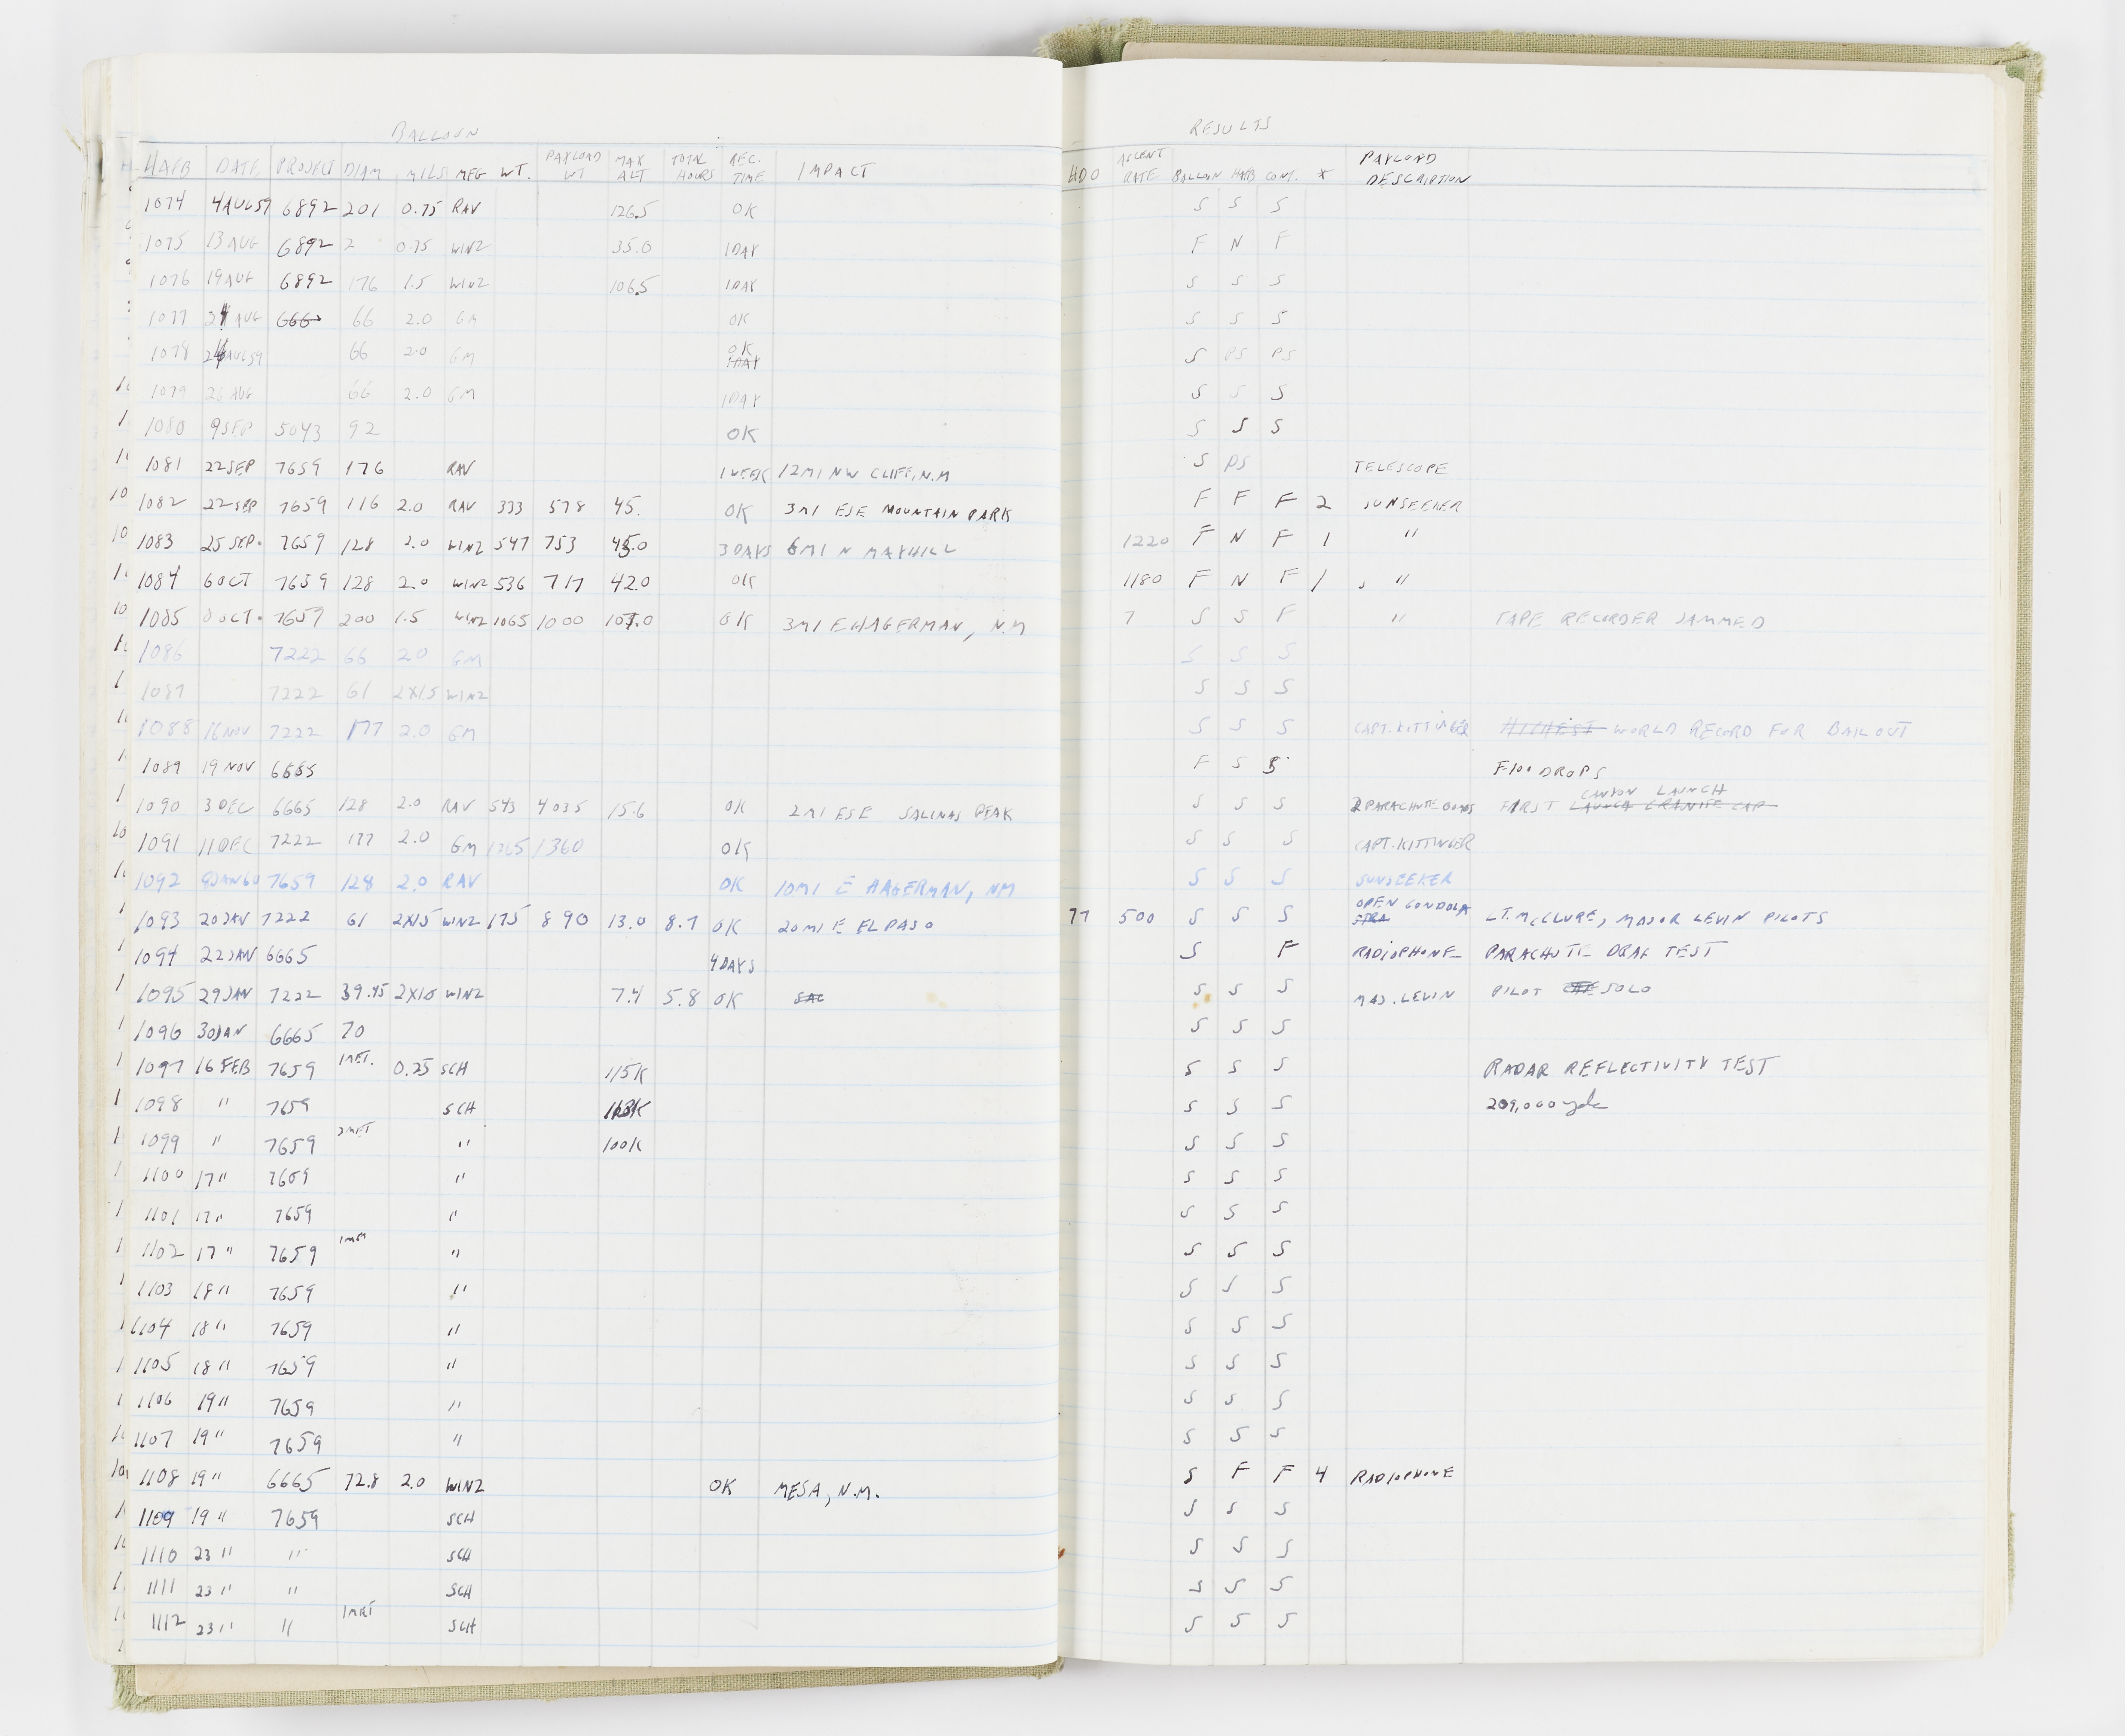 BALLOON RESULTS
HAFB DATE PROJECT DIAM MILS MFG WT. PAYLOAD WT MAX ALT TOTAL HOURS REC. TIME IMPACT HDO ASCENT RATE BALLOON HAFB CONT. * PAYLOAD DESCRIPTION
1074 4AUG59 6892 201 0.75 RAV 126.5 OK S S S
1075 13 AUG 6892 2 0.75 WINZ 35.0 1DAY F N F
1076 19AUG 6892 176 1.5 WINZ 106.5 1DAY S S S
1077 24 AUG 666 66 2.0 GM OK S S S
1078 AUG59 66 2.0 GM OK 1DAY S PS PS
1079 26 AUG 66 2.0 GM 1DAY S S S
1080 9SEP 5043 92 OK S S S
1081 22SEP 7659 176 RAV 1WEEK 12MI NW CLIFF, N.M S PS TELESCOPE
1082 22SEP 7659 116 2.0 RAV 333 578 45. OK 3MI ESE MOUNTAIN PARK F F F 2 SUNSEEKER
1083 25 SEP. 7659 128 2.0 WINZ 547 753 45.0 3DAYS 6MI N MAYHILL 1220 F N F 1 "
1084 6OCT 7659 128 2.0 WINZ 536 717 42.0 OK 1180 F N F 1 "
1085 OCT. 7659 200 1.5 WINZ 1065 1000 107.0 OK 3MI E HAGERMAN, N.M 7 S S F " TAPE RECORDER JAMMED
1086 7222 66 2.0 GM S S S
1087 7222 61 2X1.5 WINZ S S S
1088 16NOV 7222 177 2.0 GM S S S CAPT. KITTINGER HIGHEST WORLD RECORD FOR BAILOUT
1089 19 NOV 6665 F S S F100 DROPS
1090 3 DEC 6665 128 2.0 RAV 543 4035 15.6 OK 2MI ESE SALINAS PEAK S S S 2 PARACHUTE FIRST CANYON LAUNCH LAUNCH GRANITE GAP
1091 11DEC 7222 177 2.0 GM 1265 1360 OK S S S CAPT. KITTINGER
1092 8JAN60 7659 128 2.0 RAV OK 10MI E HAGERMAN, NM S S S SUNSEEKER
1093 20JAN 7222 61 2X1.5 WINZ 175 890 13.0 8.7 OK 20MI E EL PASO 77 500 S S S OPEN GONDOLA LT. McCLURE, MAJOR LEVIN PILOTS
1094 22JAN 6665 4DAYS S F RADIOPHONE PARACHUTE DRAG TEST
1095 29JAN 7222 39.45 2X1.5 WINZ 7.4 5.8 OK SAC S S S MAJ. LEVIN PILOT SOLO
1096 30JAN 6665 70 S S S
1097 16 FEB 7659 1MET. 0.25 SCH 115K S S S RADAR REFLECTIVITY TEST
1098 " 7659 SCH 113K S S S 209,000 yds
1099 " 7659 2MET " 100K S S S
1100 17" 7659 " S S S
1101 17" 7659 " S S S
1102 17" 7659 1MET " S S S
1103 18" 7659 " S S S
1104 18" 7659 " S S S
1105 18" 7659 " S S S
1106 19" 7659 " S S S
1107 19" 7659 " S S S
1108 19" 6665 72.8 2.0 WINZ OK MESA, N.M. S F F 4 RADIOPHONE
1109 19" 7659 SCH S S S
1110 23" " SCH S S S
1111 23" " SCH S S S
1112 23" " 1MET SCH S S S